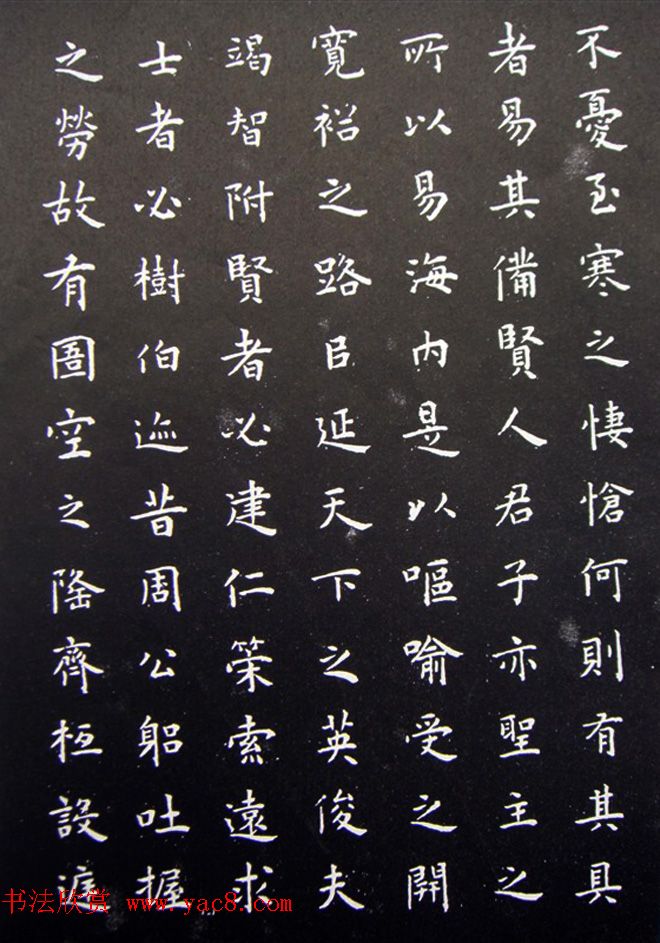 不憂至寒之悽愴何則有其具
者易其備賢人君子亦聖主之
所以易海內是以嘔喻受之開
寬裕之路㠯延天下之英俊夫
竭智附賢者必建仁策索遠求
士者必樹伯迹昔周公躳吐握
之勞故有圄空之隆齊桓設
书法欣赏 www.yac8.com